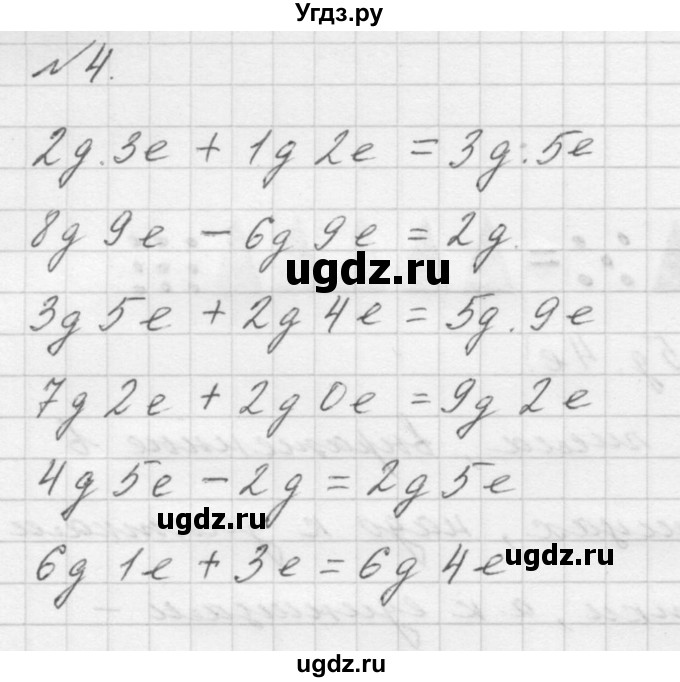 Угдз.ру
№4.
2д.3е + 1д 2е = 3д.5е
8д 9е - 6д 9е = 2д.
ugdz.ru
3д 5е + 2д 4е = 5д.9е
7д 2е + 2д 0е = 9д 2е
4д 5е - 2д = 2д 5е
ugdz.ru
6д 1е + 3е = 6д 4е
ugdz.ru
ugdz.ru